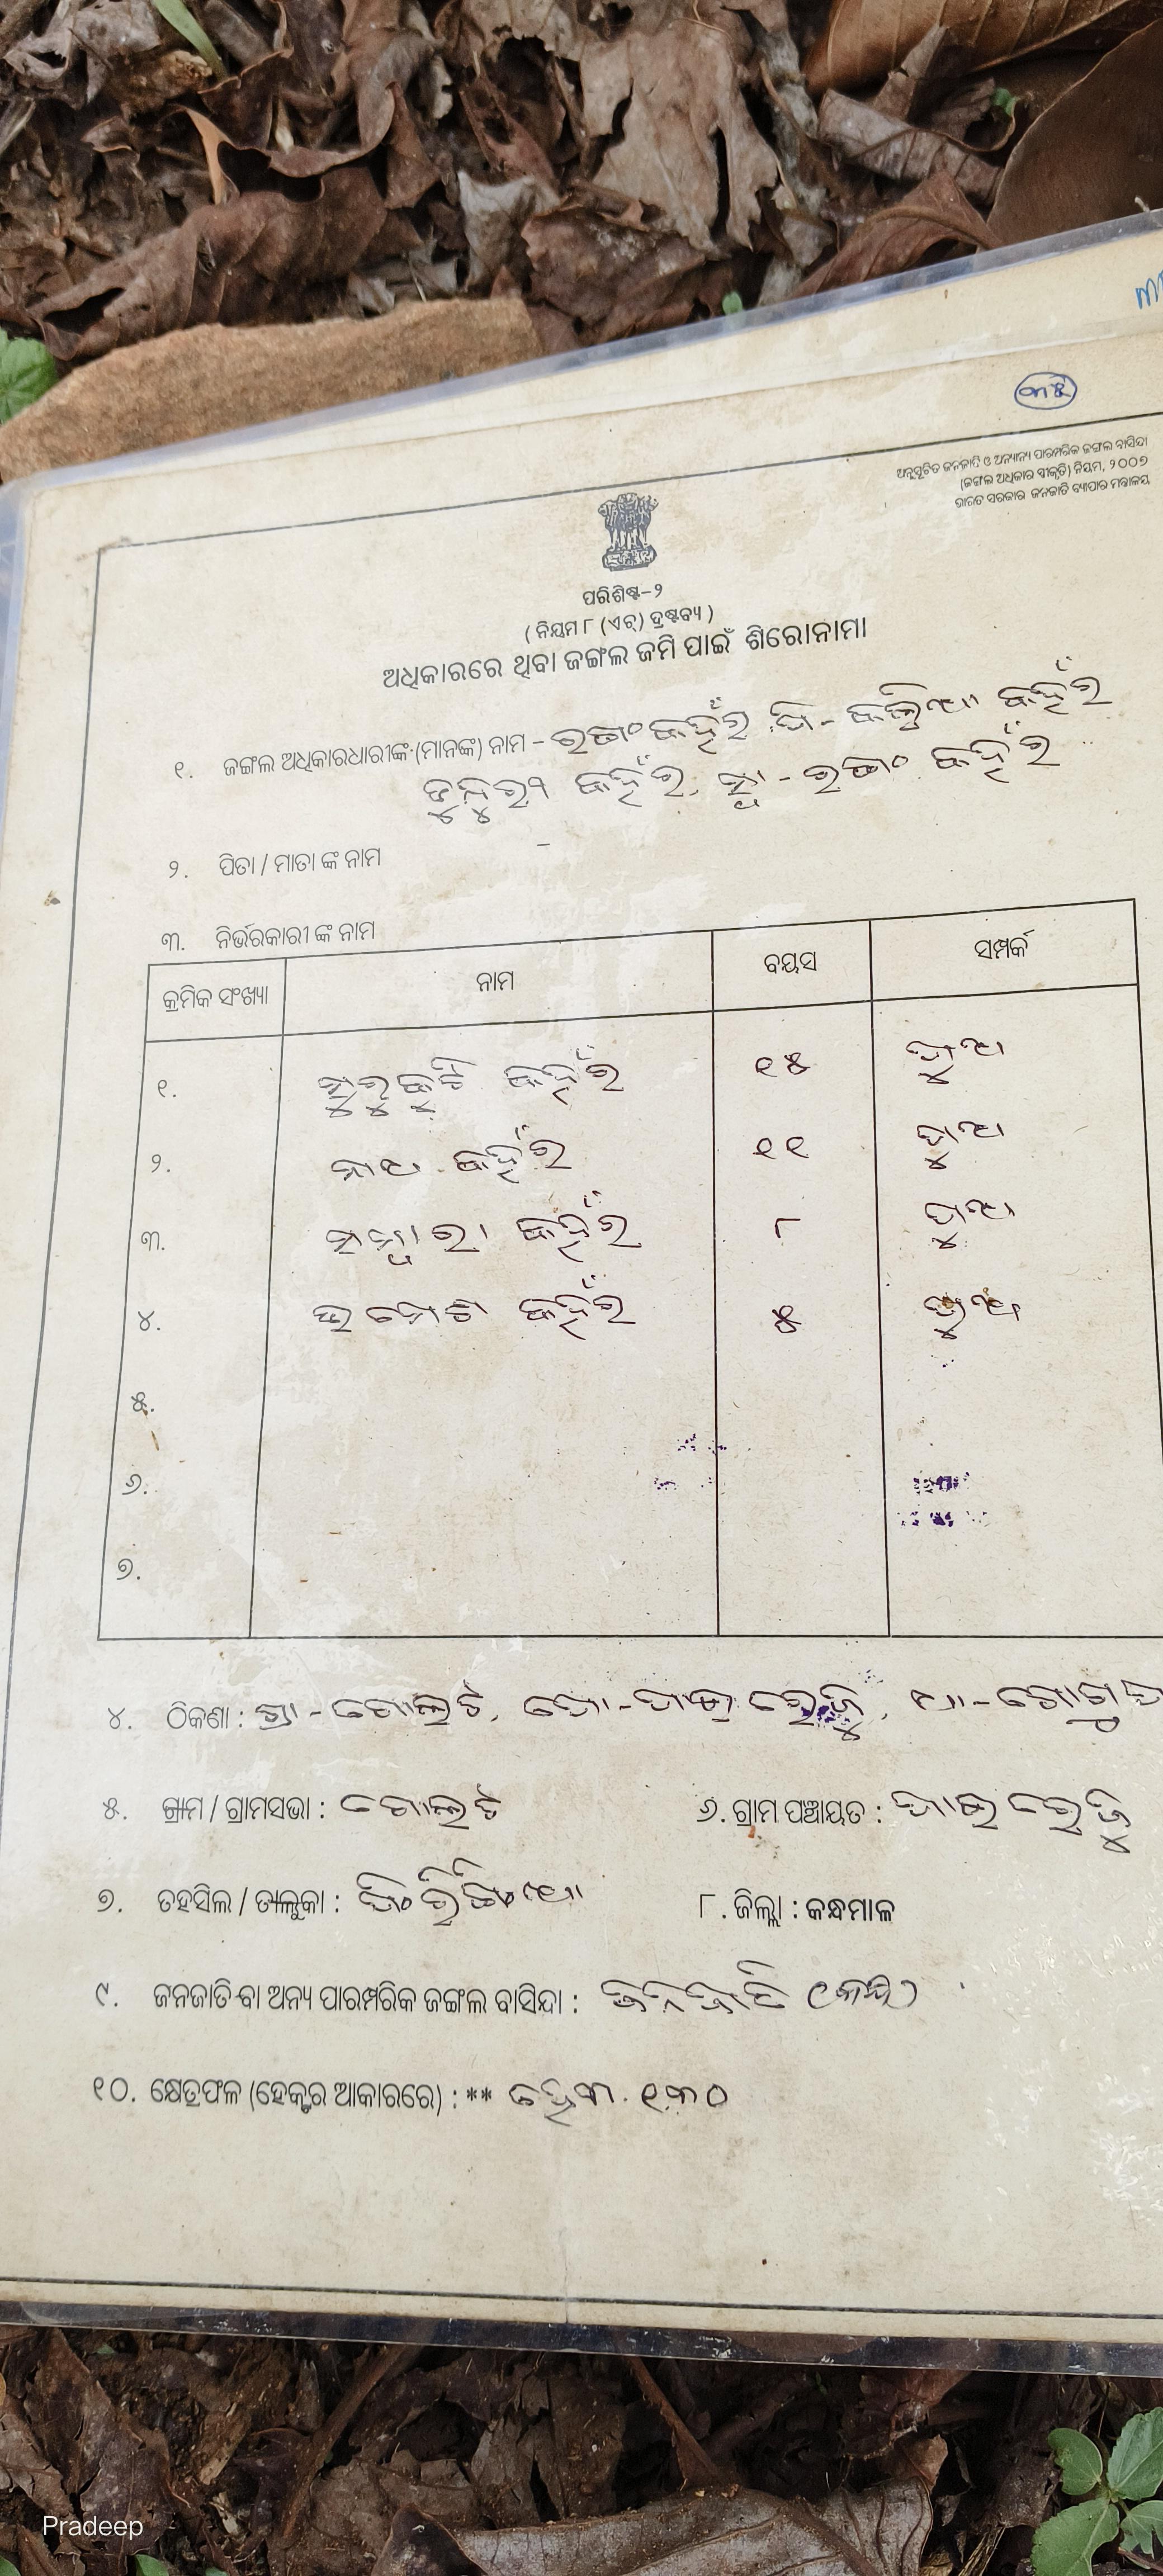 ୩୫
ଅନୁସୂଚିତ ଜନଜାତି ଓ ଅନ୍ୟାନ୍ୟ ପାରମ୍ପରିକ ଜଙ୍ଗଲ ବାସିନ୍ଦା
(ଜଙ୍ଗଲ ଅଧିକାର ସ୍ୱୀକୃତି) ନିୟମ, ୨୦୦୭
ଭାରତ ସରକାର ଜନଜାତି ବ୍ୟାପାର ମନ୍ତ୍ରାଳୟ
ପରିଶିଷ୍ଟ-୨
( ନିୟମ ୮ (ଏଚ୍) ଦ୍ରଷ୍ଟବ୍ୟ )
ଅଧିକାରରେ ଥିବା ଜଙ୍ଗଲ ଜମି ପାଇଁ ଶିରୋନାମା
୧. ଜଙ୍ଗଲ ଅଧିକାରଧାରୀଙ୍କ (ମାନଙ୍କ) ନାମ - କହଁର ପି - କହଁର
କହଁର, ସ୍ୱା - କହଁର
୨. ପିତା / ମାତା ଙ୍କ ନାମ -
୩. ନିର୍ଭରକାରୀ ଙ୍କ ନାମ
କ୍ରମିକ ସଂଖ୍ୟା ନାମ ବୟସ ସମ୍ପର୍କ
୧. କହଁର ୧୫ ପୁଅ
୨. କହଁର ୧୧ ପୁଅ
୩. କହଁର ୮ ପୁଅ
୪. କହଁର ୫
୫.
୬.
୭.
୪. ଠିକଣା : ଗ୍ରା - ଗୋଲଟି, ପୋ - ପାଇରେଜୁ, ଥା -
୫. ଗ୍ରାମ / ଗ୍ରାମସଭା : ଗୋଲଟି ୬. ଗ୍ରାମ ପଞ୍ଚାୟତ : ପାଇରେଜୁ
୭. ତହସିଲ / ତାଲୁକା : ଫିରିଙ୍ଗିଆ ୮. ଜିଲ୍ଲା : କନ୍ଧମାଳ
୯. ଜନଜାତି ବା ଅନ୍ୟ ପାରମ୍ପରିକ ଜଙ୍ଗଲ ବାସିନ୍ଦା : ଜନଜାତି (କନ୍ଧ)
୧୦. କ୍ଷେତ୍ରଫଳ (ହେକ୍ଟର ଆକାରରେ) : ** ହେ ୩.୧୩୦
Pradeep